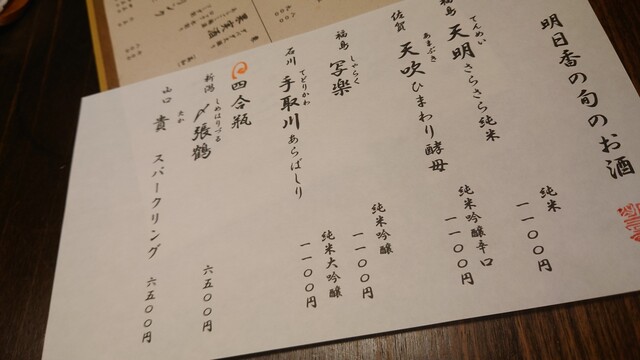 明日香の旬のお酒
福島 天明 てんめい さらさら純米 純米 一一〇〇円
佐賀 天吹 あまぶき ひまわり酵母 純米吟醸辛口 一一〇〇円
福島 写楽 しゃらく 純米吟醸 一一〇〇円
石川 手取川 てどりかわ あらばしり 純米大吟醸 一一〇〇円
四合瓶
新潟 〆張鶴 しめはりづる 六五〇〇円
山口 貴 たか スパークリング 六五〇〇円